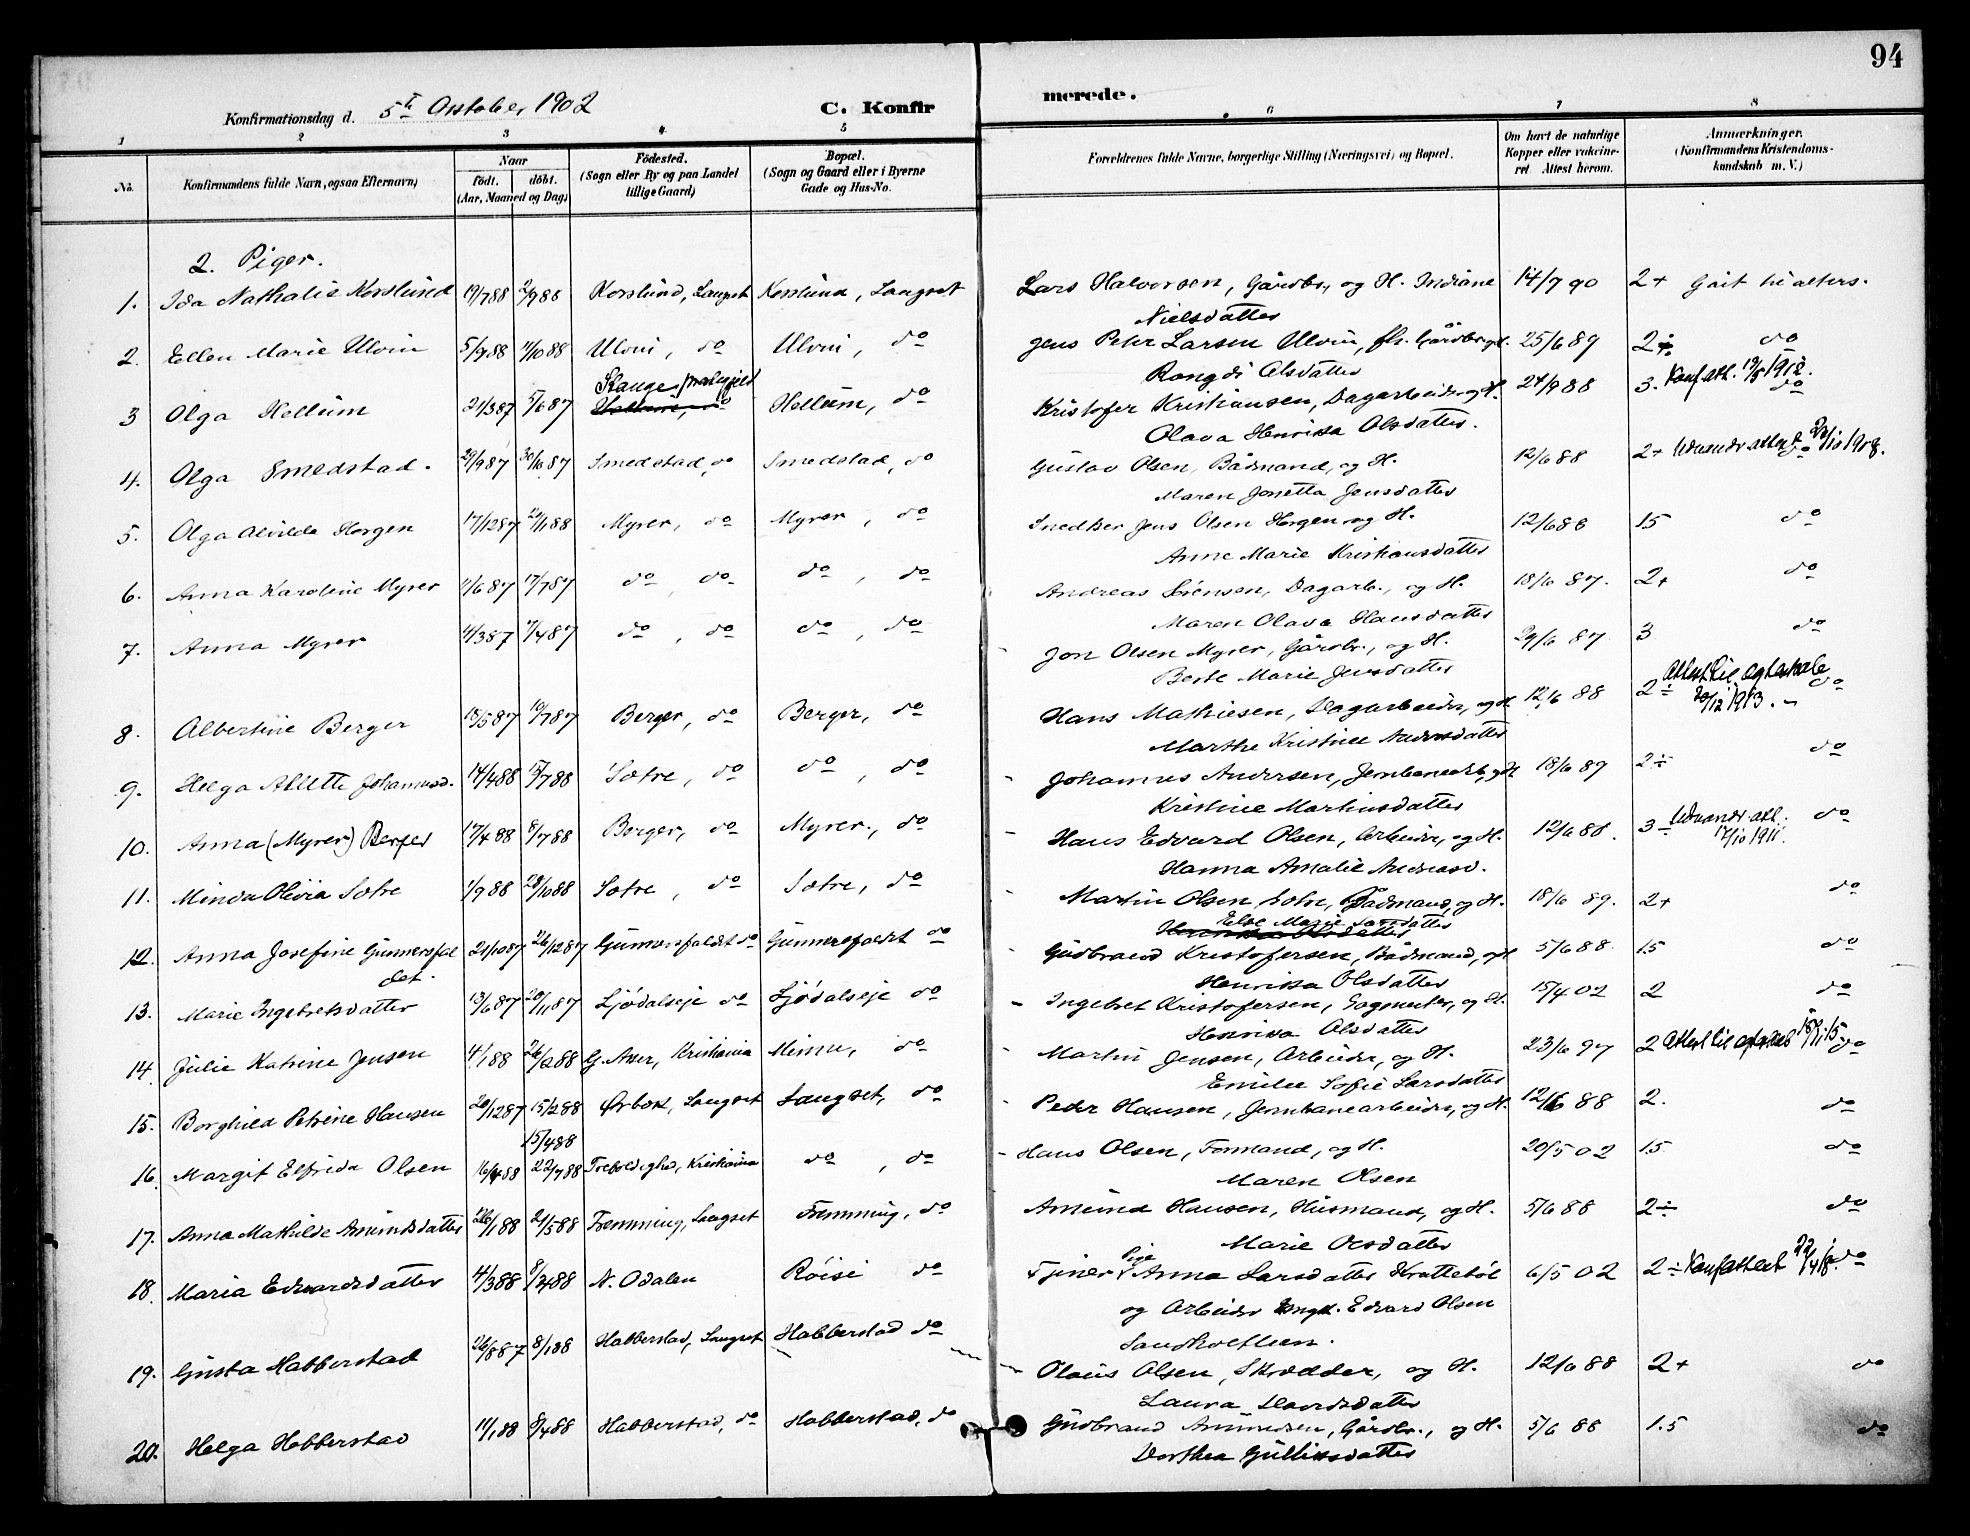 94
Konfirmationsdag d. 5te Oktober 1902 C. Konfirmerede.
1 2 3 4 5 6 7 8
No. Konfirmandens fulde Navn, ogsaa Efternavn) Naar födt. döbt. (Aar, Maaned og Dag) Födested. (Sogn eller By og paa Landet tillige Gaard) Bopæl. (Sogn og Gaard eller i Byerne Gade og Hus-No. Forældrenes fulde Navne, borgerlige Stilling (Næringsvei) og Bopæl. Om havt de naturlige Kopper eller vakcineret Attest herom. Anmærkninger. (Konfirmandens Kristendomskundskab m. V.)
2. Piger.
1. Ida Nathalie Korslund 19/7 88 2/9 88 Korslund, Langset Korslund, Langset Lars Halvorsen, Gårdbr., og H. Indiane 14/7 90 2+ Gået til alters.
Nielsdatter
2. Ellen Marie Ulvin 5/9 88 11/10 88 Ulvin, do Ulvin, do Jens Peter Larsen Ulvin, fh. Gårdbr. og H. 25/6 89 2÷ do
Rangdi Olsdatter
3 Olga Hellum 21/3 87 5/6 87 Stange præstegjeld Hellum, do Kristofer Kristiansen, Dagarbeider og H. 24/9 88 3. Konf att. 19/8 1912. do
Olava Henrikka Olsdatter.
4. Olga Smedstad. 29/9 87 30/10 87 Smedstad, do Smedstad, do Gustav Olsen, Bådmand, og H. 12/6 88 2+ Udvandr attest 23/10 1908. do
Maren Jonetta Jensdatter
5. Olga Alvilde Horgen 17/12 87 29/1 88 Myrer, do Myrer, do Snedker Jens Olsen Horgen og H. 12/6 88 1.5 do
Anne Marie Kristiansdatter
6. Anna Karoline Myrer 11/6 87 17/7 87 do, do do, do Andreas Sörensen, Dagarb., og H. 18/6 87. 2+ do
Maren Olava Hansdatter
7. Anna Myrer 11/3 87 17/4 87 do, do do, do Jon Olsen Myrer, Gårdbr., og H. 29/6 87 3 do
Berte Marie Jensdatter
8. Albertine Berger 13/5 87 10/7 87 Berger, do Berger, do Hans Mathiesen, Dagarbeider, og H. 12/6 88 2÷ Attest til ægteskab 20/12 1913. do
Marthe Kristine Andersdatter
9. Helga Alette Johannesd. 14/4 88 15/7 88 Sætre, do do, do Johannes Andersen, Jernbanearb., og H. 18/6 89 2÷ do
Kristine Martinsdatter
10. Anna (Myrer) Berger 17/4 88 8/7 88 Berger, do Myrer, do Hans Edvard Olsen, Arbeider, og H. 12/6 88. 3÷ Udvandr att. 17/10 1911. do
Hanna Amalie Andreasd.
11. Minda Olivia Sætre 1/9 88 28/10 88 Sætre, do Sætre, do Martin Olsen Sætre, Bådmand, og H. 18/6 89. 2+ do
Else Marie Larsdatter
12. Anna Josefine Gunnersfal 21/10 87 26/12 87 Gunnersfaldet do Gunnersfaldet do Gudbrand Kristofersen, Bådmand, og H. 5/6 88. 1.5 do
det. Henrikka Olsdatter
13. Marie Ingebretsdatter 13/6 87 20/11 87 Ljödalseje do Ljödalseje do Ingebret Kristofersen, Sagmester, og H. 15/4 02 2 do
Henrikka Olsdatter
14. Julie Katrine Jensen 4/1 88 26/2 88 G. Aker, Kristiania Minne, do Martin Jensen, Arbeider, og H. 23/6 97 2 Attest til ægteskab 18/11 15 do
Emilie Sofie Larsdatter
15. Borghild Petrine Hansen 20/12 87 15/2 88 Ørbæk, Langset Langset, do Peder Hansen, Jernbanearbeider, og H. 12/6 88 2. do
15/4 88
16. Margit Elfrida Olsen 16/4 88 22/7 88 Trefoldighed, Kristiania do, do Hans Olsen, Formand, og H. 20/5 02 1.5 do
Maren Olsen
17. Anna Mathilde Amundsdatter 26/1 88 21/5 88 Fremming, Langset Fremming, do Amund Hansen, Husmand, og H. 5/6 88 2÷ do
Marie Olsdatter
18. Maria Edvardsdatter 4/3 88 8/4 88 N. Odalen Röise do Tjener Pige Anna Larsdatter Krattebøl 6/5 02 2÷ Konfattest 22/4 18. do
og Arbeider Ungk. Edvard Olsen
Sandholteien.
19. Gusta Habberstad 26/8 87 8/1 88 Habberstad, Langset Habberstad do Olaus Olsen, Skrædder, og H. 12/6 88 2+ do
Laura Havordsdatter
20. Helga Habberstad 11/1 88 8/4 88 Habberstad, do Habberstad, do Gudbrand Amundsen, Gårdbr., og H. 5/6 88 1.5 do
Dorthea Gulliksdatter